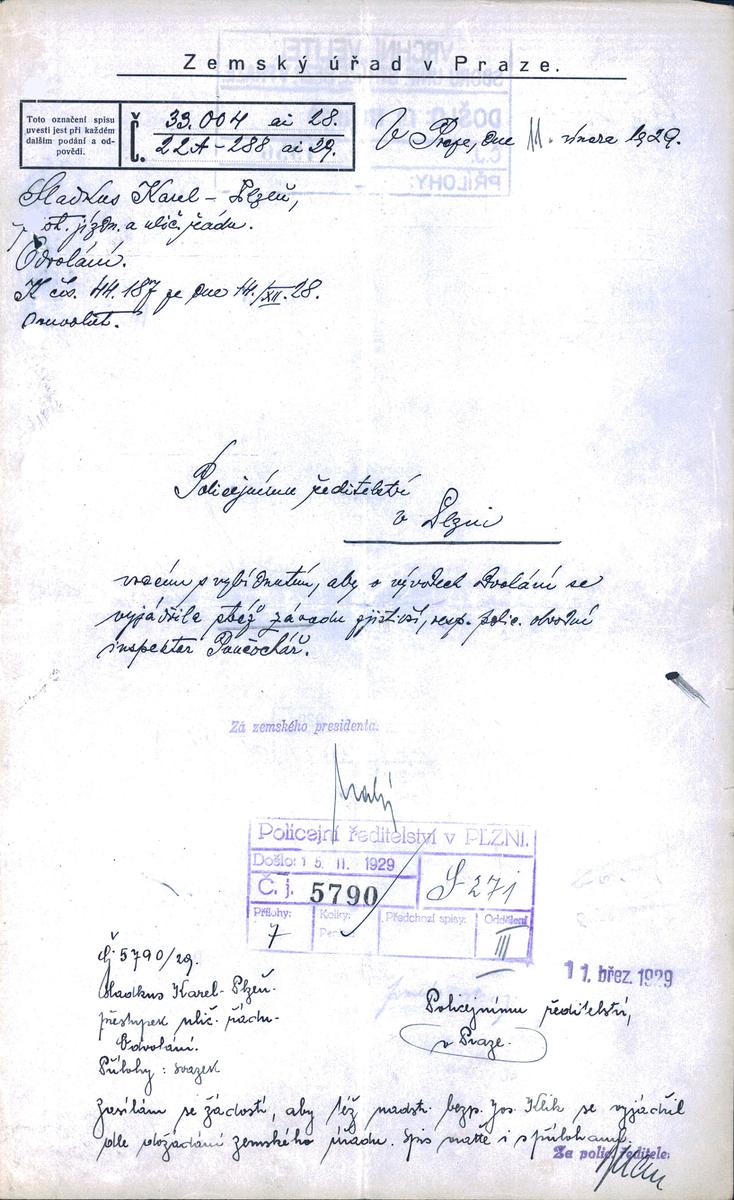 Zemský úřad v Praze.
Toto označení spisu
uvésti jest při každém
dalším podání a od-
povědi.
Č.
33.004 ai 28.
22A-288 ai 29.
V Praze, dne 11. února 1929.
Sladkus Karel - Plzeň,
st. jízdn. a ulič. řádu.
Odvolání.
K čís. 44.187 ze dne 14./XII. 28.
Policejnímu ředitelství
v Plzni
vracím s vybídnutím, aby o vývodech odvolání se
vyjádřila stráž závadu zjistivší, resp. polic. obvodní
inspektor Punčochář.
Za zemského presidenta:
Policejní ředitelství v PLZNI.
Došlo: 15. II. 1929
Č. j. 5790
S 271
Přílohy:
7
Kolky:
Předchozí spisy:
Oddělení
III
Č 5790/29.
Sladkus Karel - Plzeň.
přestupek ulič. řádu -
Odvolání.
Přílohy: svazek
11. břez. 1929
Policejnímu ředitelství,
v Praze.
Zasílám se žádostí, aby též nadstr. bezp. Jos. Klik se vyjádřil
dle dožádání zemského úřadu. Spis vraťte i s přílohami.
Za polic. ředitele: